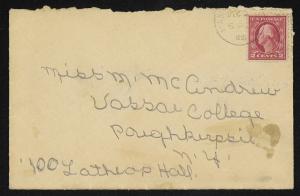 U.S. POSTAGE
2 CENTS 2
Miss M. McAndrew
Vassar College
Poughkeepsie
N.Y.
100 Lathrop Hall.